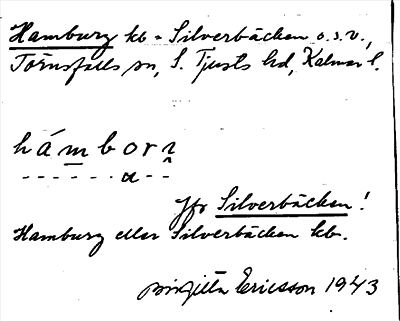 Hamburg kb = Silverbäcken o.s.v.,
Törnsfalls sn, S. Tjusts hd, Kalmar l.
hámborı
a
Jfr Silverbäcken!
Hamburg eller Silverbäcken kb.
Birgitta Ericsson 1943